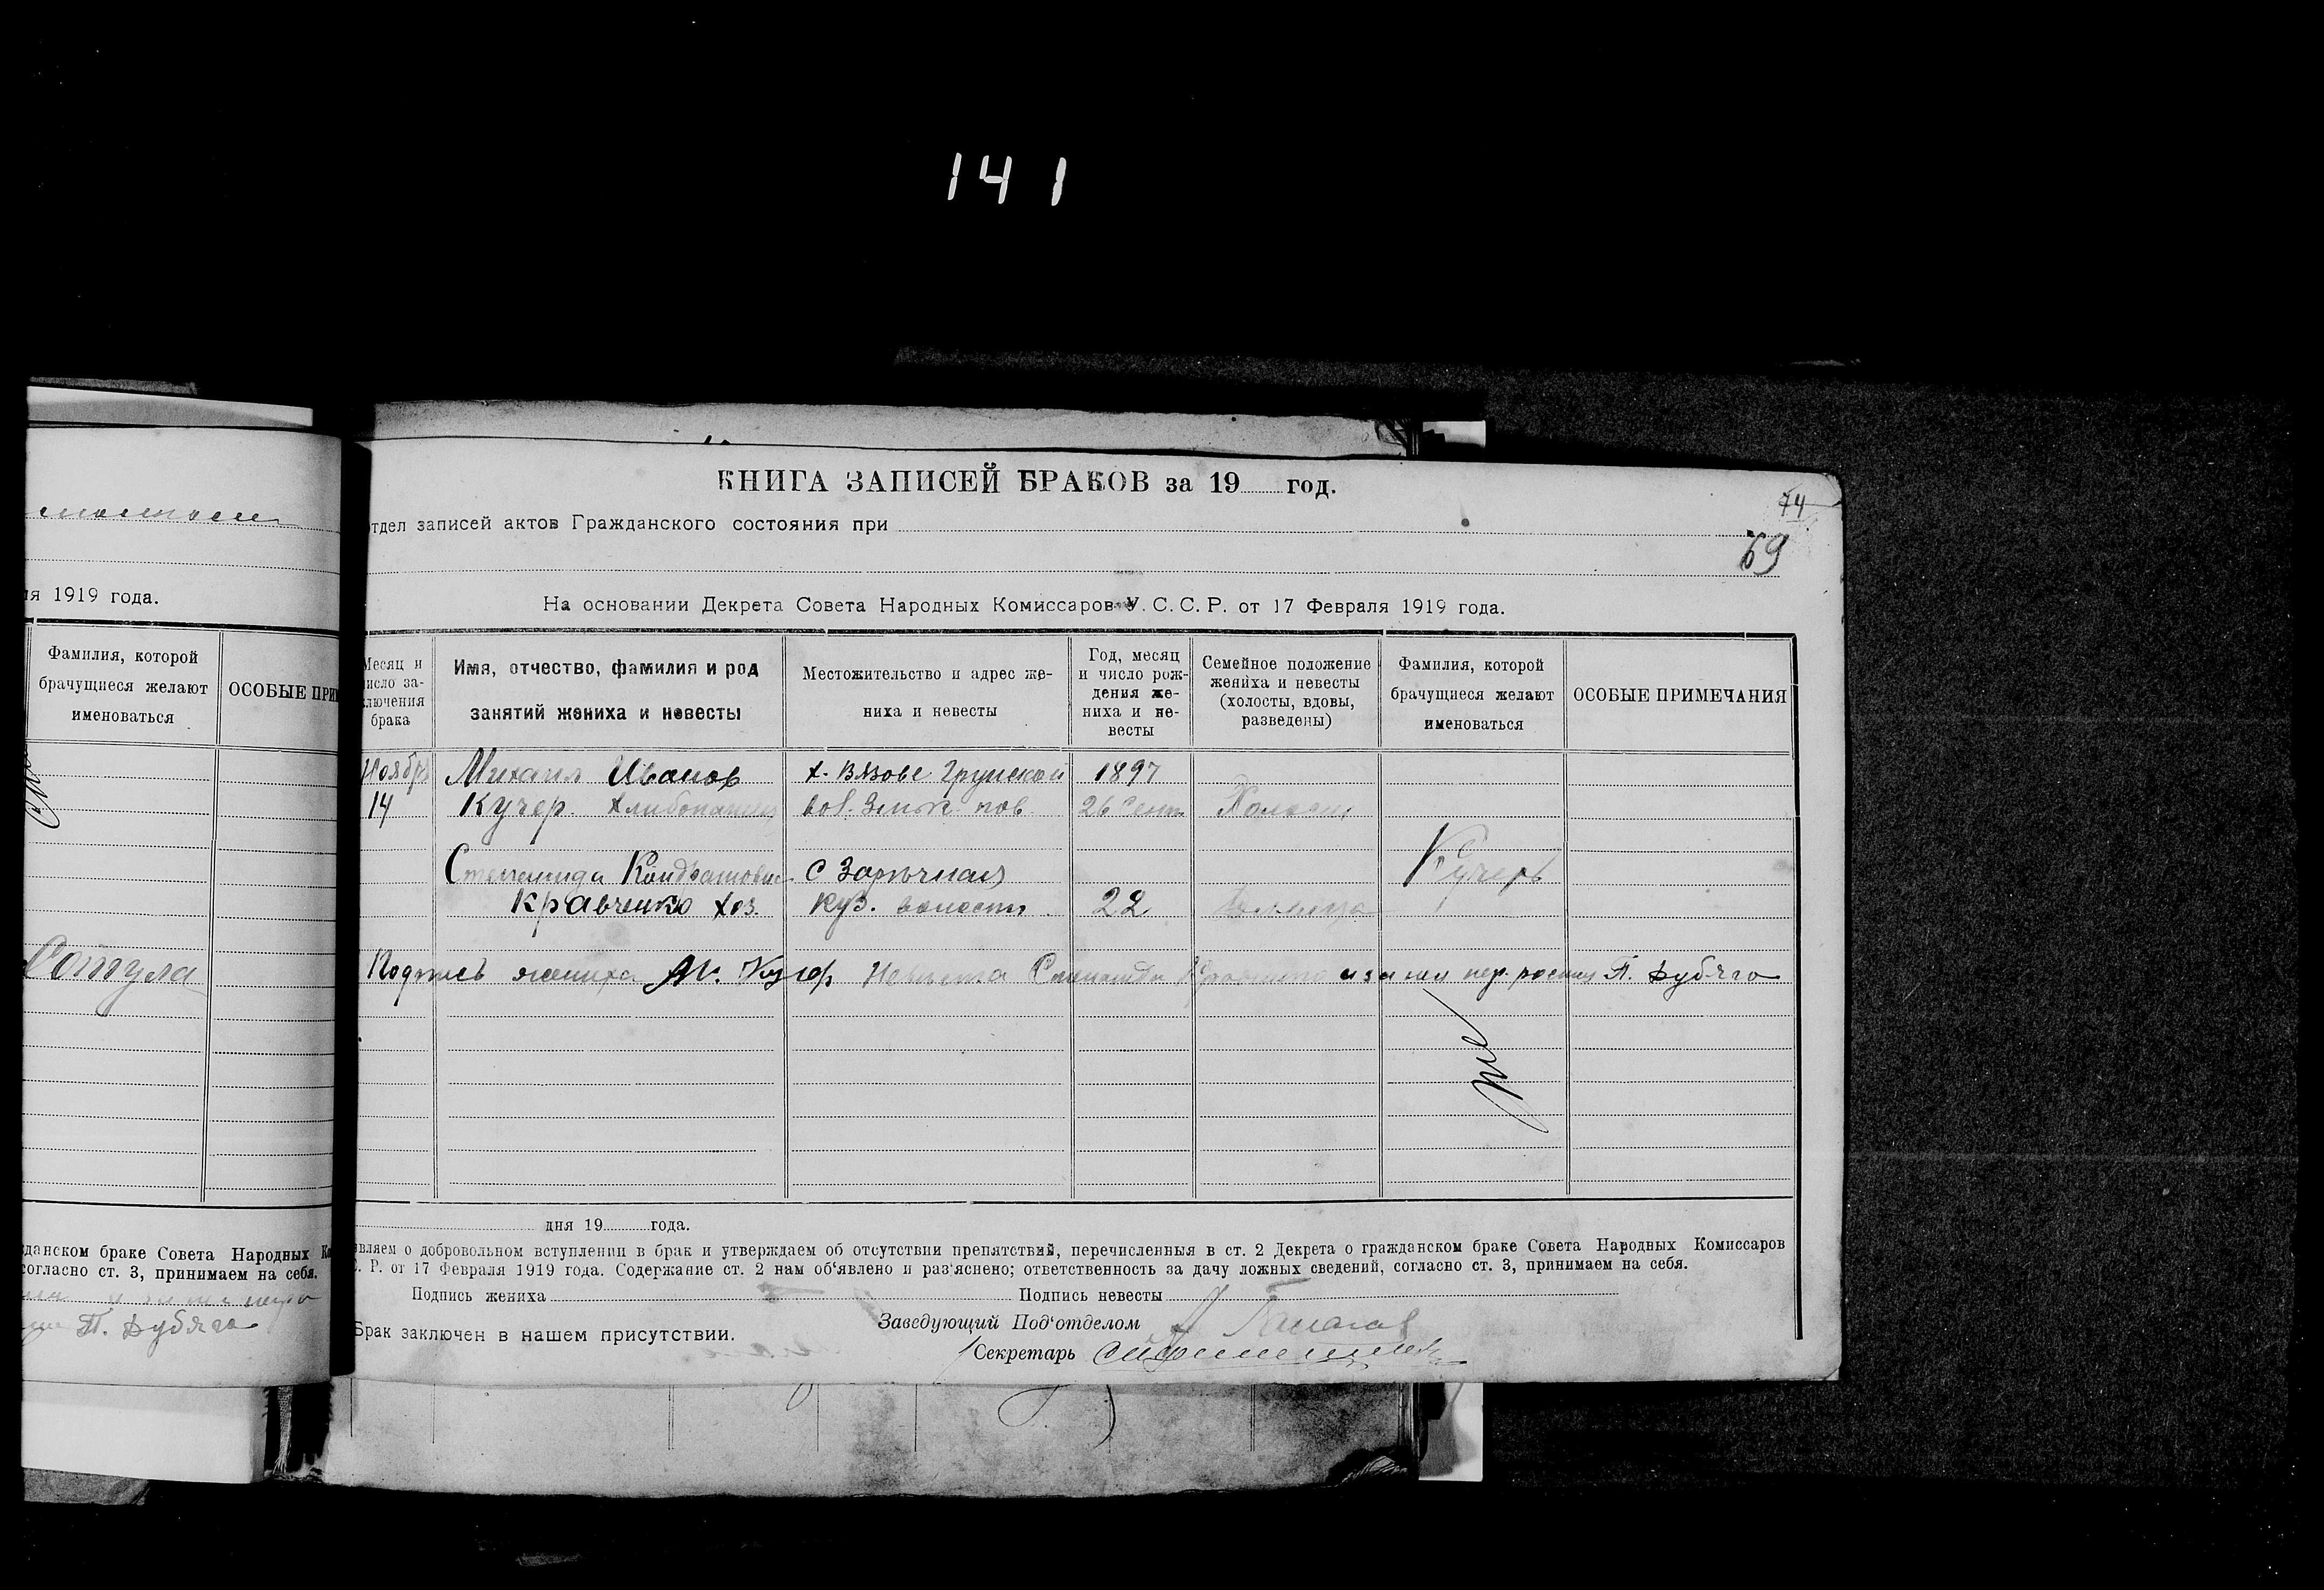 141
КНИГА ЗАПИСЕЙ БРАКОВ за 19 год.
74
тдел записей актов Гражданского состояния при
69
На основании Декрета Совета Народных Комиссаров У. С. С. Р. от 17 Февраля 1919 года.
я 1919 года.
Фамилия, которой брачущиеся желают именоваться
ОСОБЫЕ ПРИМ
Месяц и число заключения брака
Имя, отчество, фамилия и род занятий жениха и невесты
Местожительство и адрес жениха и невесты
Год, месяц и число рождения жениха и невесты
Семейное положение жениха и невесты (холосты, вдовы, разведены)
Фамилия, которой брачущиеся желают именоваться
ОСОБЫЕ ПРИМЕЧАНИЯ
Ноябрь Михаил Иванов х. Вязове Грунской 1897
14 Кучер вол. пов 26 Сент Холост
Степанида Кондратовна с Заричная Кучер
Кравченко хоз. Куз. волости 22
Подпись жениха М. Кучер Невеста Степанида Кравченко а за нее П. Дубяго
Сотула
дня 19 года.
данском браке Совета Народных Ко
согласно ст. 3, принимаем на себя.
П. Дубяго
вляем о добровольном вступлении в брак и утверждаем об отсутствии препятствий, перечисленныя в ст. 2 Декрета о гражданском браке Совета Народных Комиссаров
С. Р. от 17 Февраля 1919 года. Содержание ст. 2 нам об‘явлено и раз‘яснено; ответственность за дачу ложных сведений, согласно ст. 3, принимаем на себя.
Подпись жениха Подпись невесты
Заведующий Под‘отделом
Брак заключен в нашем присутствии.
Секретарь